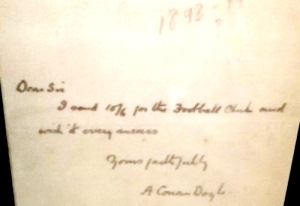 1898
Dear Sir
I send 10/6 for the Football Club and
wish it every success
Yours faithfully
A Conan Doyle